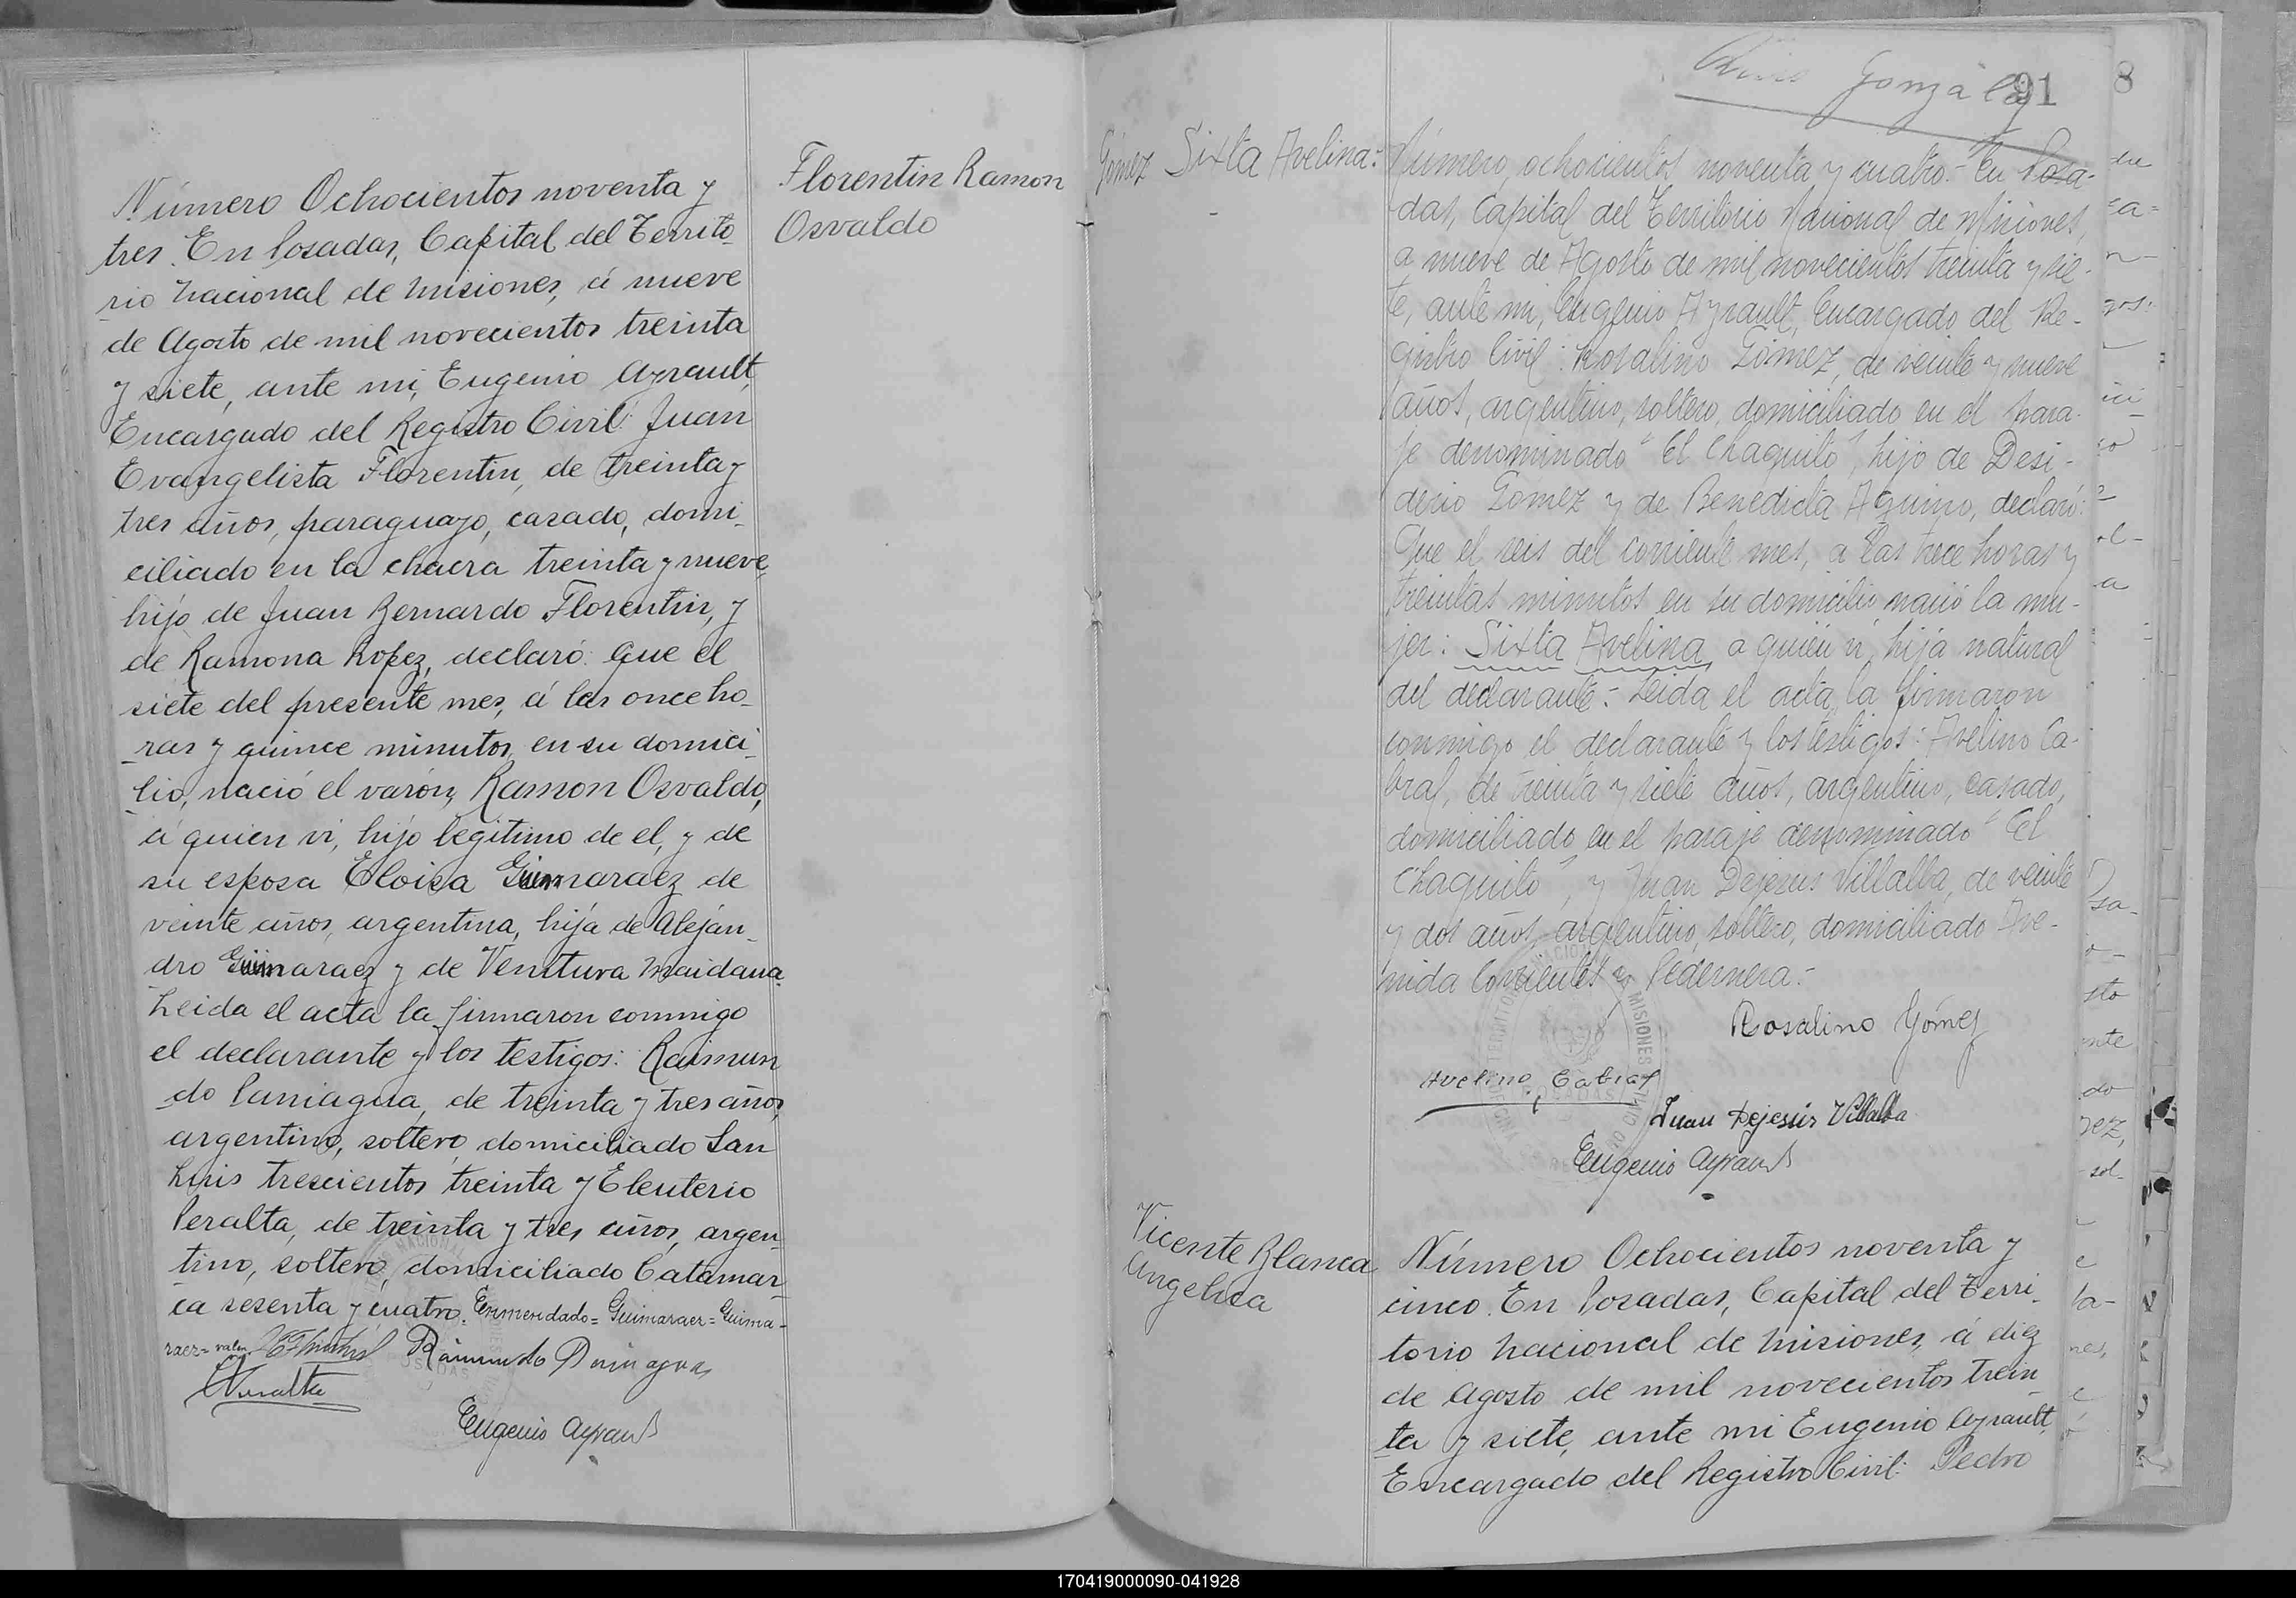 Número Ochocientos noventa y
tres. En Posadas, Capital del Territo-
rio Nacional de Misiones, á nueve
de Agosto de mil novecientos treinta
y siete, ante mi, Eugenio Ayrault,
Encargado del Registro Civil: Juan
Evangelista Florentin, de treinta y
tres años, paraguayo, casado, domi-
ciliado en la chacra treinta y nueve,
hijo de Juan Bernardo Florentin, y
de Ramona Lopez, declaró: Que el
siete del presente mes, á las once ho-
ras y quince minutos, en su domici-
lio, nació el varón, Ramon Osvaldo,
á quien vi, hijo legitimo de el, y de
su esposa Eloisa Guimaraez de
veinte años, argentina, hija de Aleján-
dro Guimaraez y de Ventura Maidana.
Leida el acta la firmaron conmigo
el declarante y los testigos: Raimun
do Paniagua, de treinta y tres años,
argentino, soltero, domiciliado San
Luis trescientos treinta y Eleuterio
Peralta, de treinta y tres años, argen-
tino, soltero, domiciliado Catamar-
ca sesenta y cuatro. Enmendado= Guimaraez= Guima-
raez= valen.
Raimundo Paniagua
EPeralta
Eugenio Ayrault
Florentin Ramon
Osvaldo
González
91
8
Gómez Sixta Avelina:
Número, ochocientos noventa y cuatro.- En Posa-
das, Capital del Territorio Nacional de Misiones,
a nueve de Agosto de mil novecientos treinta y sie-
te, ante mi, Eugenio Ayrault, Encargado del Re-
gistro Civil: Rosalino Gómez, de veinte y nueve
años, argentino, soltero, domiciliado en el para-
je denominado "El Chaquito", hijo de Desi-
derio Gomez y de Benedicta Aquino, declaró:
Que el seis del corriente mes, a las trece horas y
treintas minutos en su domicilio, nació la mu-
jer: Sixta Avelina, a quién vi, hija natural
del declarante.- Leida el acta, la firmaron
conmigo el declarante y los testigos: Avelino Ca-
bral, de treinta y siete años, argentino, casado,
domiciliado en el paraje denominado "El
Chaquito", y Juan Dejesus Villalba, de veinte
y dos años, argentino, soltero, domiciliado Ave-
nida Corrientes y Pedernera.-
Rosalino Gómez
Avelino Cabral
Juan Dejesús Villalba
Eugenio Ayrault
Vicente Blanca
Angelica
Número Ochocientos noventa y
cinco. En Posadas, Capital del Terri-
torio Nacional de Misiones, á diez
de Agosto de mil novecientos trein
ta y siete, ante mi Eugenio Ayrault,
Encargado del Registro Civil: Pedro
170419000090-041928